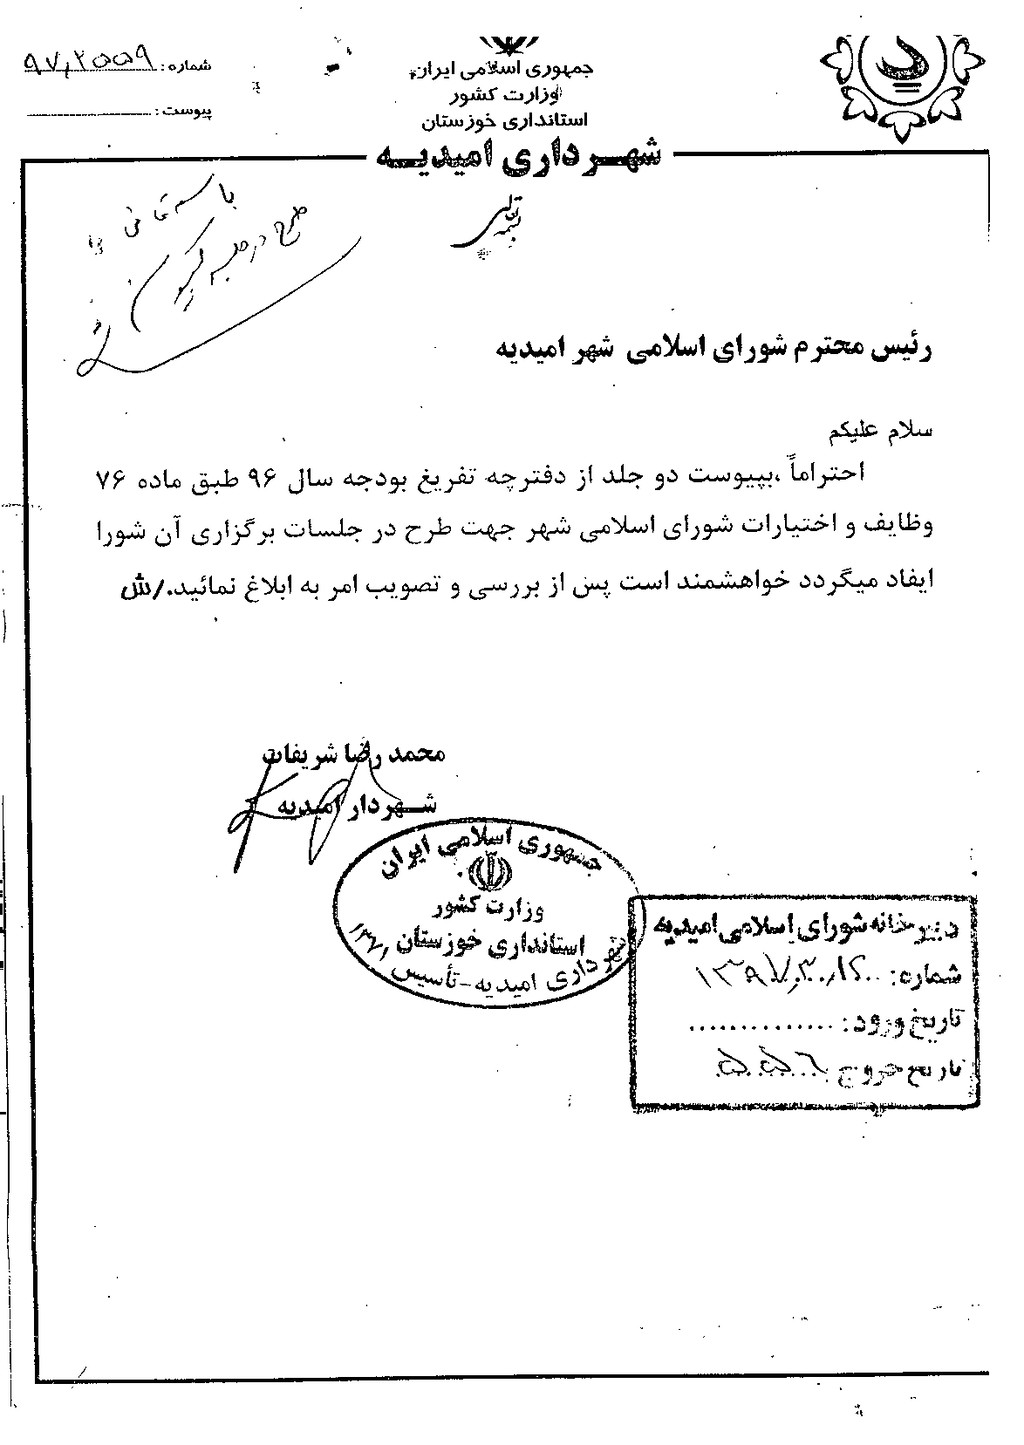 جمهوری اسلامی ایران
وزارت کشور
استانداری خوزستان
شهرداری امیدیه
شماره: ۹۷٫۲۵۵۹
پیوست:
بسمه تعالی
طرح در جلسه
رئیس محترم شورای اسلامی شهر امیدیه
سلام علیکم
احتراماً ،بپیوست دو جلد از دفترچه تفریغ بودجه سال ۹۶ طبق ماده ۷۶
وظایف و اختیارات شورای اسلامی شهر جهت طرح در جلسات برگزاری آن شورا
ایفاد میگردد خواهشمند است پس از بررسی و تصویب امر به ابلاغ نمائید./ش
محمد رضا شریفات
شهردار امیدیه
جمهوری اسلامی ایران
وزارت کشور
استانداری خوزستان
شهرداری امیدیه-تأسیس ۱۳۷۱
دبیرخانه شورای اسلامی امیدیه
شماره:
تاریخ ورود: ..............
تاریخ خروج